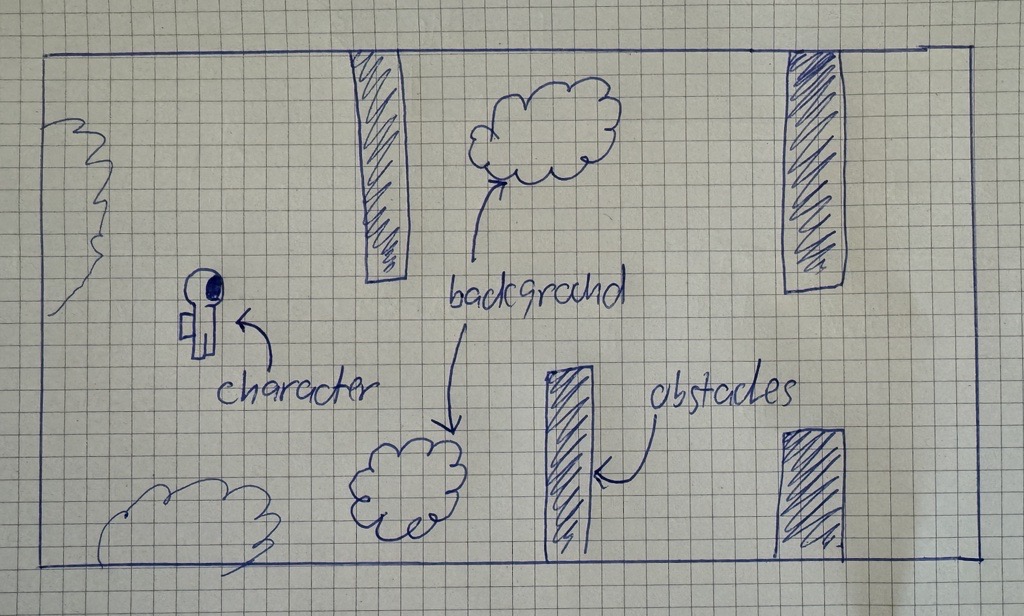 background
character
obstacles